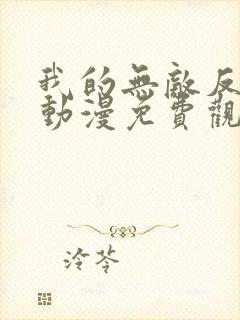 我的無敵反
動漫免費觀
泠苓